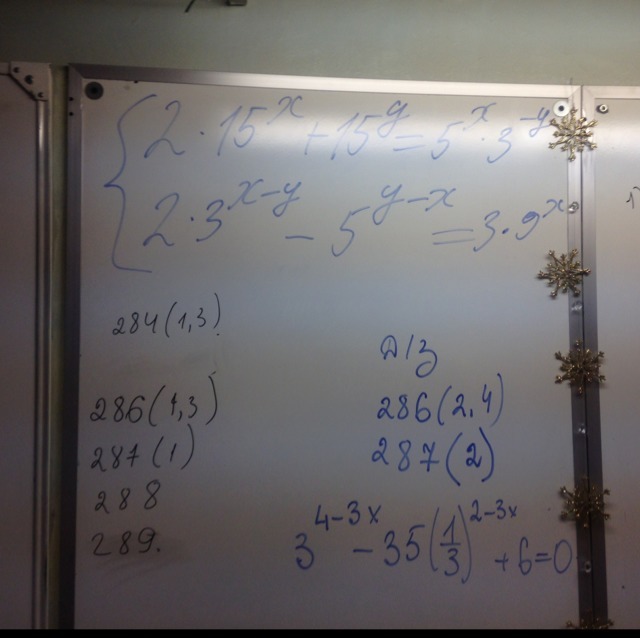 2·15^x + 15^y = 5^x·3^-y
2·3^x-y - 5^y-x = 3·9^x
284(1,3)
286(1,3)
287(1)
288
289.
Д/З
286(2,4)
287(2)
3^4-3x - 35(1/3)^2-3x + 6=0